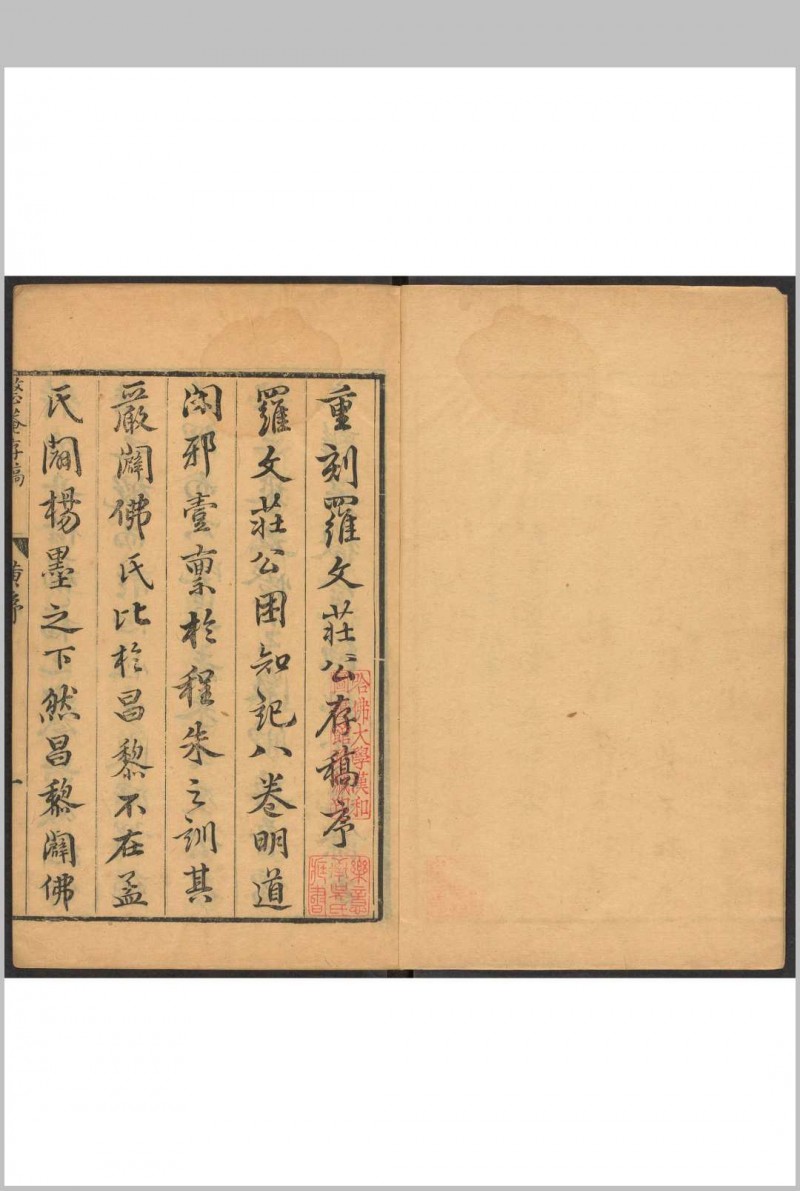 重刻羅文莊公存稿序
羅文莊公困知記八卷明道
閑邪壹稟於程朱之訓其
嚴闢佛氏比於昌黎不在孟
氏闢楊墨之下然昌黎闢佛
存稿
黃序
一
哈佛大學漢和